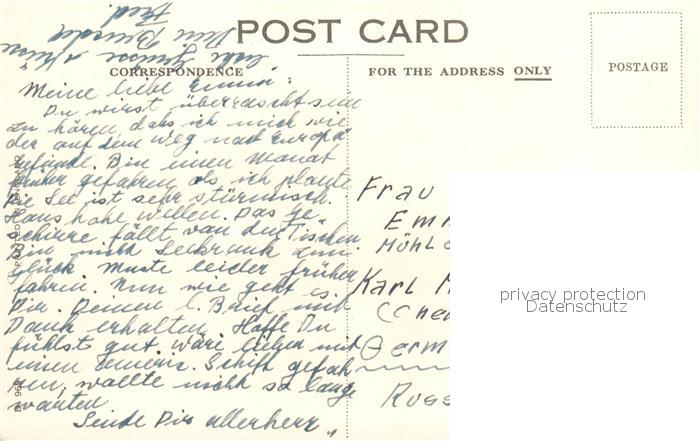 POST CARD
CORRESPONDENCE
FOR THE ADDRESS ONLY
POSTAGE
Meine liebe Emmi:
Du wirst überrascht sein
zu hören, dass ich mich wie
der auf dem Weg nach Europa
befinde. Bin einen Monat
früher gefahren als ich plante
Die See ist sehr stürmisch.
Haus hohe Wellen. Das Ge
schirr fällt von den Tischen
Bin nicht Seekrank zum
Glück. Muste leider früher
fahren. Nun wie geht es
Dir. Deinen l. Brief mit
Dank erhalten. Hoffe Du
fühlst gut. Wäre lieber mit
einen americ. Schiff gefah
ren, wollte nicht so lange
warten
Sende Dir allerherz
Dein Bruder
Fred.
Frau
Karl M
Germ
privacy protection
Datenschutz